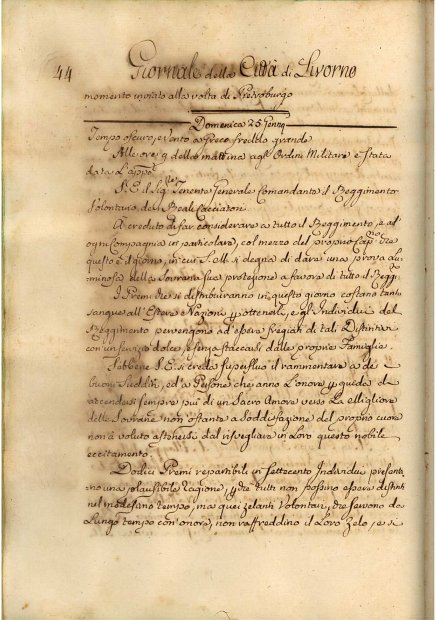 44 Giornale della Città di Livorno
momento inviato alla volta di Pietroburgo
Domenica 25 Genn.
Tempo oscuro, e vento a Greco freddo grande
Alle ore 9 della mattina agl'Ordini Militare è stata
data l'app.
S. E. il Sig.re Tenente Generale Comandante il Reggimento
Volontario dei Reali Cacciatori
A creduto di far considerare a tutto il Reggimento, e ad
ogni Compagnia in particolare, col mezzo del proprio Cap.no che
questo è il giorno, in cui S. A. R. si degna di dare una prova lu:
minosa della Sovrana sua protezione a favore di tutto il Regg.
I Premi che si distribuiranno in questo giorno costano tanto
sangue all'Estere Nazioni per ottenerli, e gl'Individui del
Reggimento pervengono ad essere fregiati di tali Distintivi
con un servizio dolce, e senza staccarsi dalle proprie Famiglie.
Sebbene S. E. si creda superfluo il rammentare a de
buoni Sudditi, ed a Persone che anno l'onore per guida di
accendersi sempre più di un Sacro Amore verso la
delle Sovrane non ostante a Soddisfazione del proprio cuore
non à voluto astenersi dal risvegliare in Loro questo nobile
eccitamento.
Dodici Premi repartibili in Settecento Individui presenta:
no una plausibile ragione, per che tutti non possino essere distinti
nel medesimo tempo, ma quei zelanti Volontari, che servono da
Lungo tempo con onore, non raffreddino il Loro zelo, e si